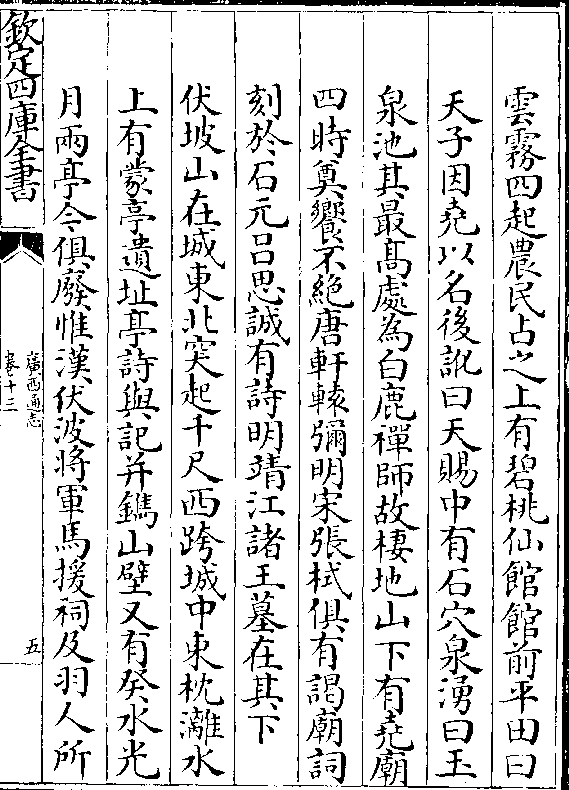 雲霧四起農民占之上有碧桃仙館館前平田曰
天子因堯以名後訛曰天賜中有石穴泉湧曰玉
泉池其最髙處為白鹿禪師故棲地山下有堯廟
四時奠饗不絶唐軒轅彌明宋張栻俱有謁廟詞
刻於石元吕思誠有詩明靖江諸王墓在其下
伏坡山在城東北突起千尺西跨城中東枕灕水
上有䝉亭遺址亭詩與記并鐫山壁又有癸水光
月兩亭今俱廢惟漢伏波將軍馬援祠及羽人所
欽定四庫全書
廣西通志
卷十三
五